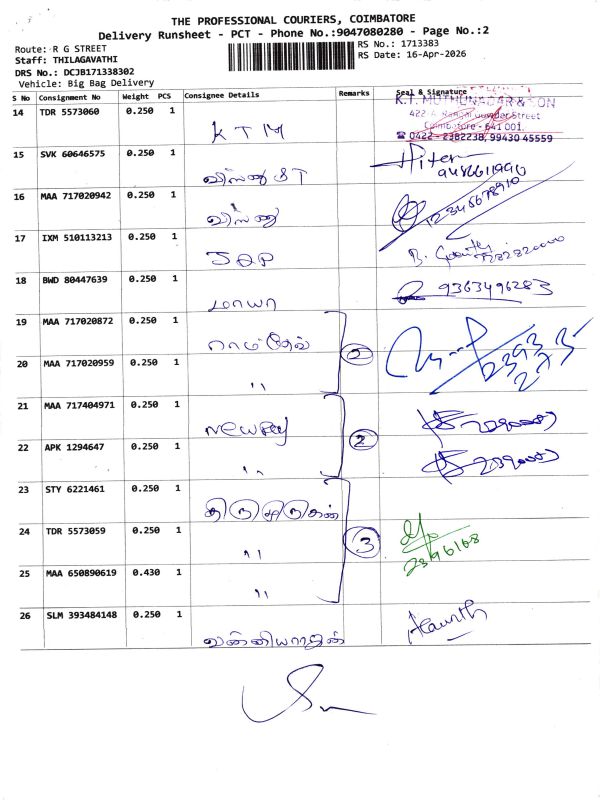 THE PROFESSIONAL COURIERS, COIMBATORE
Delivery Runsheet - PCT - Phone No.:9047080280 - Page No.:2
Route: R G STREET
RS No.: 1713383
Staff: THILAGAVATHI
RS Date: 16-Apr-2026
DRS No.: DCJB171338302
Vehicle: Big Bag Delivery
S No Consignment No Weight PCS Consignee Details Remarks Seal & Signature
14 TDR 5573060 0.250 1 KTM
K.T. MUTHUNADAR & SON
Coimbatore - 641 001.
0422 - 2382238, 99430 45559
15 SVK 60646575 0.250 1 விஸ்ணு ST Hiten
16 MAA 717020942 0.250 1 விஸ்ணு 12345678910
17 IXM 510113213 0.250 1
18 BWD 80447639 0.250 1 மாயா 9363496283
19 MAA 717020872 0.250 1 ராம்தேவ்
20 MAA 717020959 0.250 1 "
21 MAA 717404971 0.250 1
22 APK 1294647 0.250 1 " 2
23 STY 6221461 0.250 1
24 TDR 5573059 0.250 1 " 3
25 MAA 650890619 0.430 1 "
26 SLM 393484148 0.250 1